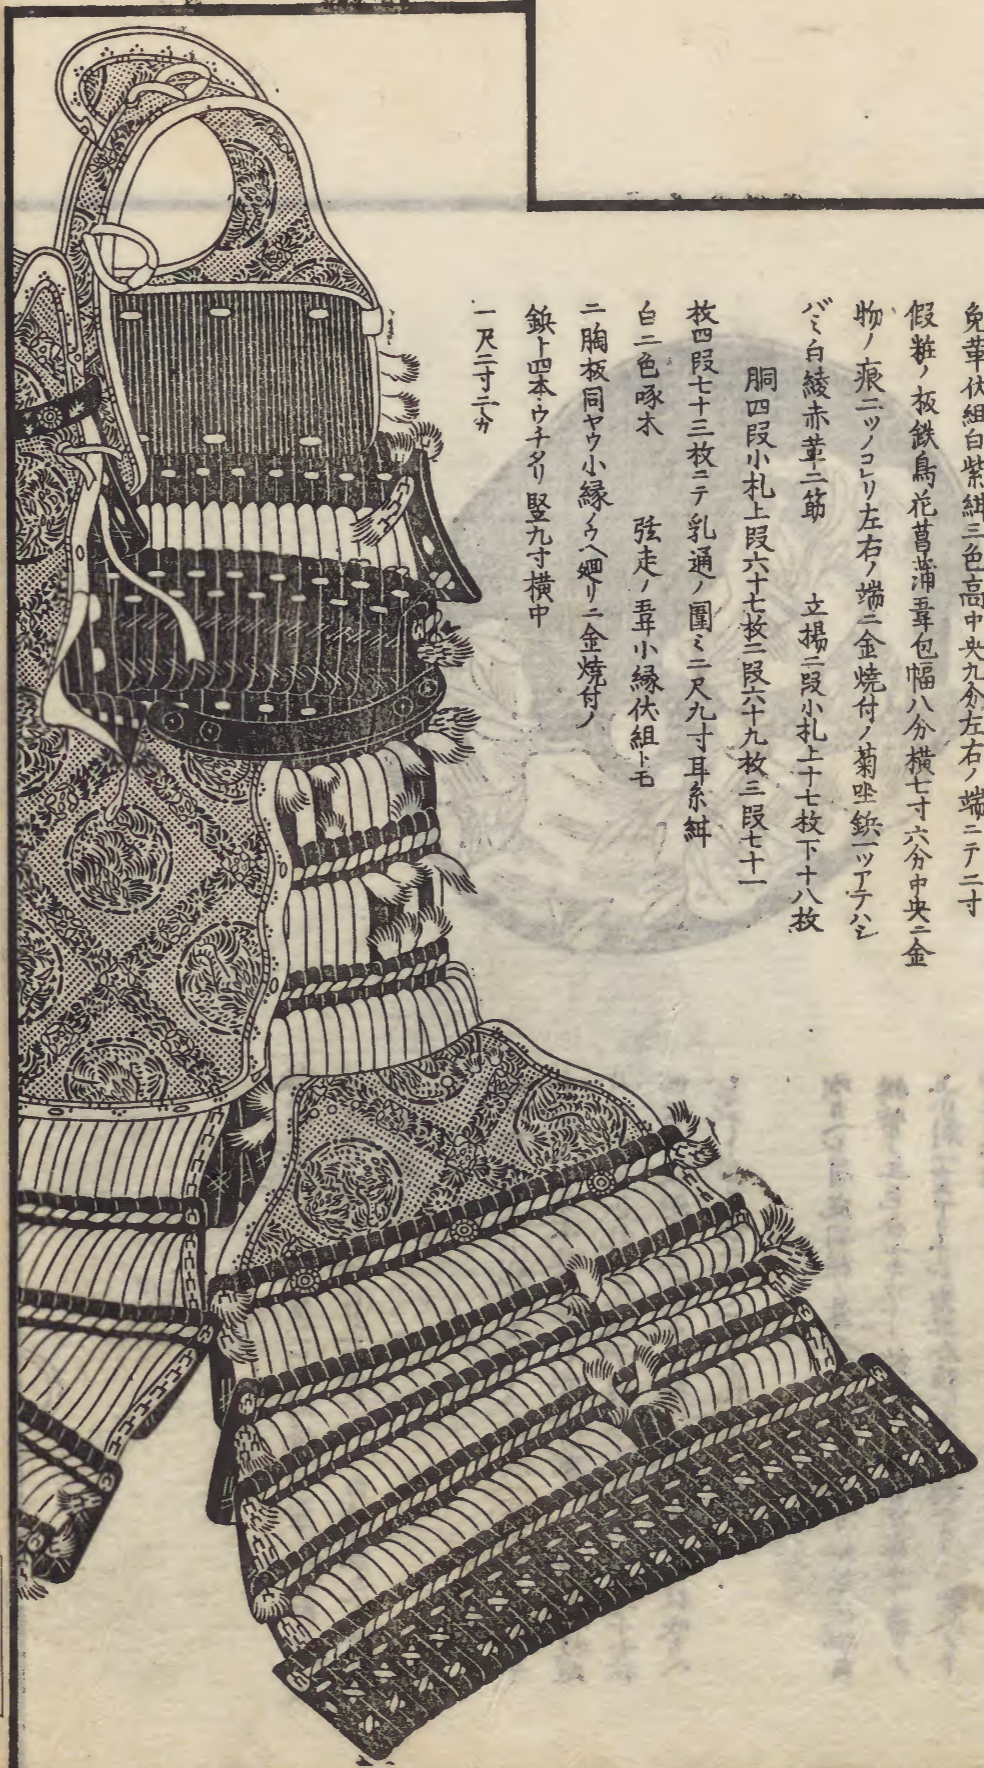 免革伏組白紫紺三色高中央九分左右ノ端ニテ二寸
假粧ノ板鉄鳥花菖蒲韋包幅八分横七寸六分中央ニ金
物ノ痕二ツノコレリ左右ノ端ニ金焼付ノ菊唑鋲一ツアテハシ
バミ白綾赤革二筋 立揚二段小札上十七枚下十八枚
胴四段小札上段六十七枚二段六十九枚三段七十一
枚四段七十三枚ニテ乳通ノ圍ミ二尺九寸耳糸紺
白二色啄木 弦走ノ韋小縁伏組トモ
ニ胸板同ヤウ小縁ノウヘ廻リニ金焼付ノ
鋲ト四本ウチタリ竪九寸横中
一尺二寸二分